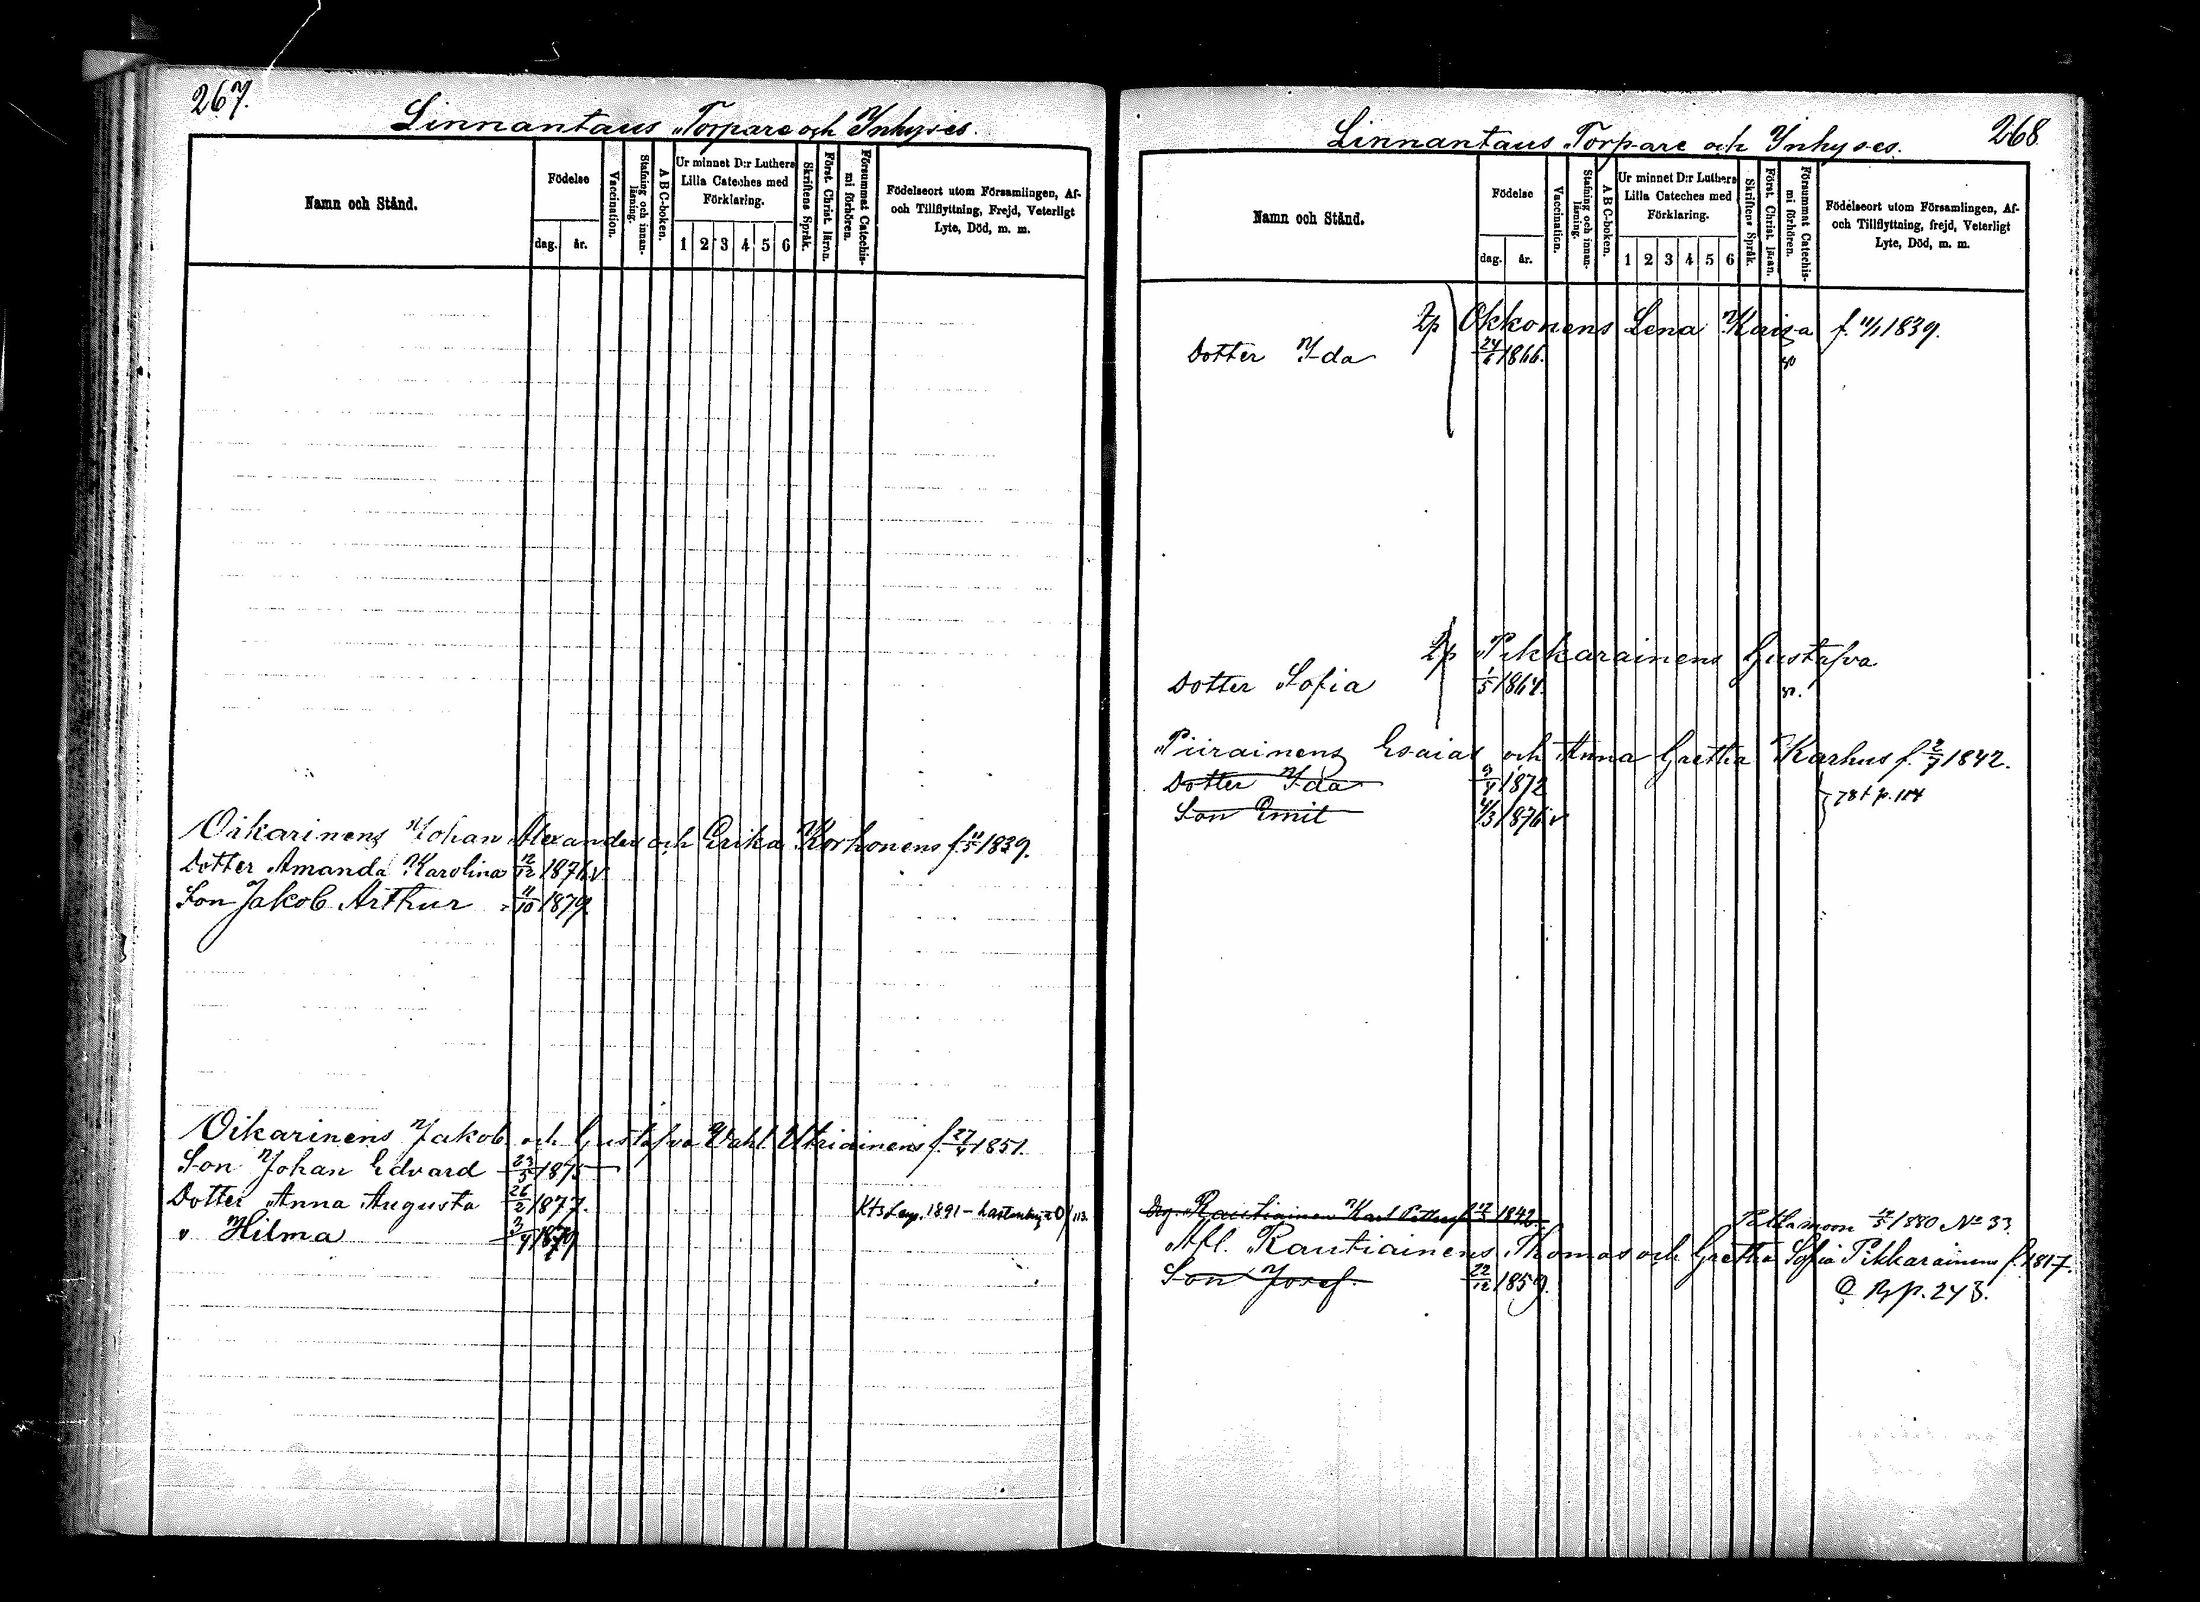 267.
Linnantaus Torpare och Inhyses.
Namn och Stånd.
Födelse
dag.
år.
Vaccination.
Stafning och innan-läsning.
ABC-boken.
Ur minnet D:r Luthers
Lilla Cateches med
Förklaring.
1 2 3 4 5 6
Skriftens Språk.
Först. Christ. läran.
Försummat Catechis-mi förhören.
Födelseort utom Församlingen, Af-
och Tillflyttning, Frejd, Veterligt
Lyte, Död, m. m.
Oikarinens Johan Alexander och Erika Korhonens f. 1839.
Dotter Amanda Karolina 12/12 1876 v
Son Jakob Arthur 11/10 1879
Oikarinens Jakob och Gustafva Wahl Ukriainens f. 27/4 1851.
Son Johan Edvard 23/5 1875
Dotter Anna Augusta 26/2 1877.
" Hilma 3/4 1879
1891
268
Linnantaus Torpare och Inhyses.
Namn och Stånd.
Födelse
dag.
år.
Vaccination.
Stafning och innan-läsning.
ABC-boken.
Ur minnet D:r Luthers
Lilla Cateches med
Förklaring.
1 2 3 4 5 6
Skriftens Språk.
Först. Christ. läran.
Försummat Catechis-mi förhören.
Födelseort utom Församlingen, Af-
och Tillflyttning, frejd, Veterligt
Lyte, Död, m. m.
Okkonens Lena Kaisa f. 11/1 1839.
Dotter Ida 24/6 1866.
Pikkarainens Gustafva
Dotter Sofia 1/5 1864.
Piirainens Esaias och Anna Gretha Karhus f. 2/7 1842.
Dotter Ida 9/4 1872
Son Emil 1876 v
Rautiainen Karl Petter 1842
1880 No 33
Afl. Rautiainens Thomas och Gretha Sofia Pikkarainens f. 1817.
Son Josef. 22/12 1859.
p. 243.